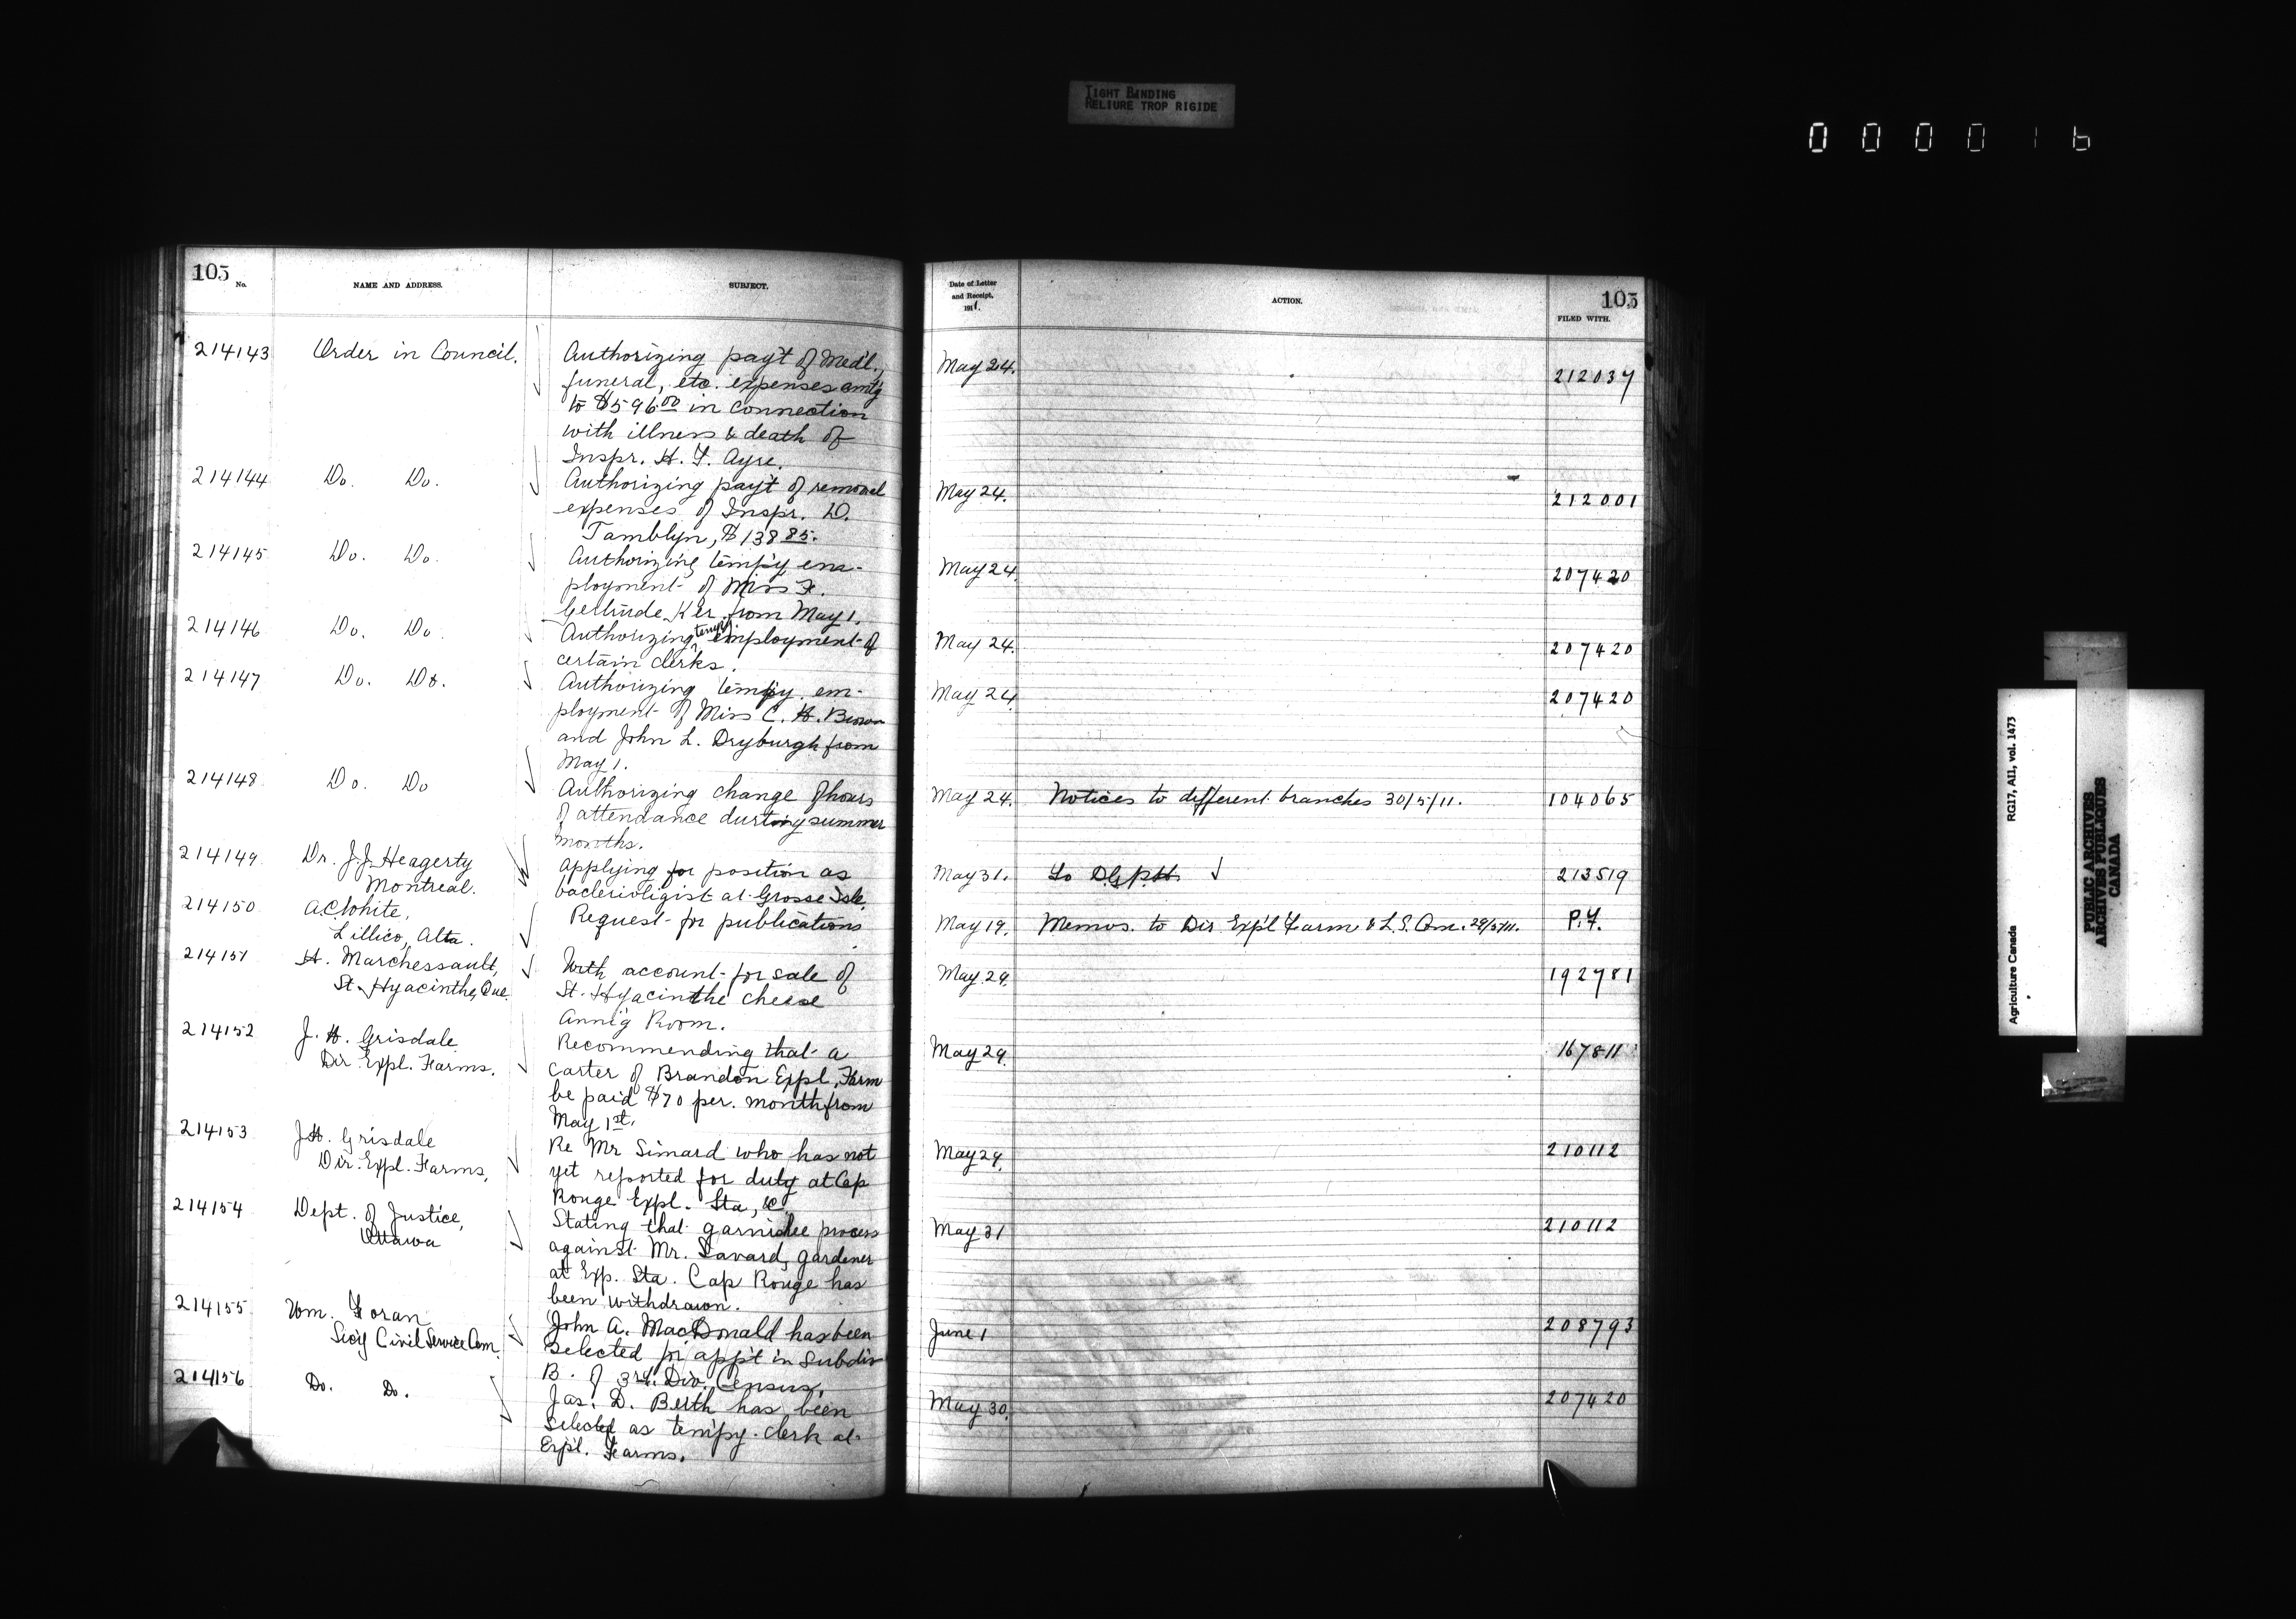 TIGHT BINDING
RELIURE TROP RIGIDE
0 0 0 0 1 6
105
No.
NAME AND ADDRESS.
SUBJECT.
214143
Order in Council.
Authorizing pay't of Med'l.,
funeral, etc. expenses amt'g
to $596.00 in connection
with illness & death of
Inspr. H. F. Ayre.
214144
Do. Do.
Authorizing pay't of removal
expenses of Inspr. D.
Tamblyn, $138.85.
214145
Do. Do.
Authorizing temp'y em-
ployment of Miss F.
Gertrude Ker from May 1.
214146
Do. Do.
Authorizing temp'y employment of
certain clerks.
214147
Do. Do.
Authorizing temp'y em-
ployment of Miss C. H. Brown
and John L. Dryburgh from
May 1.
214148
Do. Do
Authorizing change of hours
of attendance during summer
months.
214149
Dr. J.J. Heagerty
Montreal.
Applying for position as
bacterioligist at Grosse Isle.
214150
A.C. White,
Lillico, Alta.
Request for publications
214151
H. Marchessault,
St. Hyacinthe, Que.
With account for sale of
St. Hyacinthe cheese
Ann'g Room.
214152
J. H. Grisdale
Dir. Expl. Farms.
Recommending that a
carter of Brandon Expl. Farm
be paid $70 per. month from
May 1st.
214153
J.H. Grisdale
Dir. Expl. Farms,
Re Mr Simard who has not
yet reported for duty at Cap
Rouge Expl. Sta, &c
214154
Dept. of Justice,
Ottawa
Stating that garnishee process
against Mr. Savard, gardener
at Exp. Sta. Cap Rouge has
been withdrawn.
214155
Wm. Foran
Sec'y Civil Service Com.
John A. MacDonald has been
selected for app't in Subdiv
B. of 3rd. Div. Census.
214156
Do. Do.
Jas. D. Beith has been
selected as temp'y. clerk at
Exp'l. Farms.
Date of Letter
and Receipt,
1911.
ACTION.
105
FILED WITH.
May 24.
212037
May 24.
212001
May 24.
207420
May 24.
207420
May 24
207420
May 24. Notices to different branches 30/5/11.
104065
May 31. To DGPH
213519
May 19. Memos. to Dir Exp'l Farm & L.S. Com. 29/5/11.
P.F.
May 29.
192781
May 29.
167811
May 29.
210112
May 31
210112
June 1
208793
May 30.
207420
Agriculture Canada
RG17, AII, vol. 1473
PUBLIC ARCHIVES
ARCHIVES PUBLIQUES
CANADA